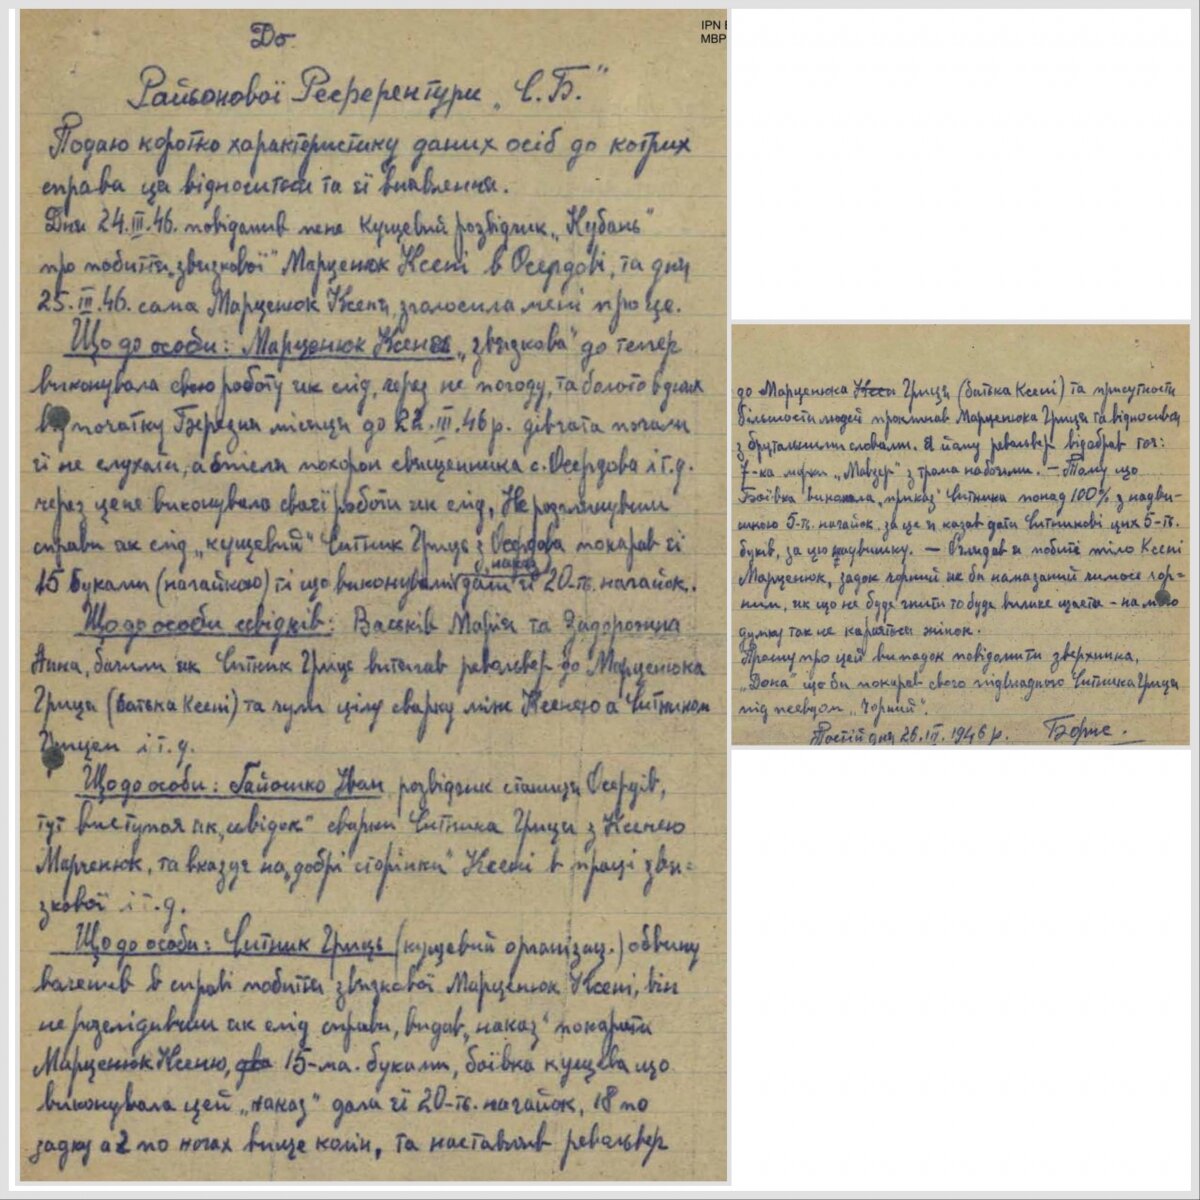 До
Районової Референтури „С.Б.“
IPN
MBP
Подаю коротко характеристику даних осіб до котрих
справа ця відноситься та її виявлення.
Дня 24.III.46. повідомив мене кущевий розвідчик „Кубань“
про побиття „звязкової“ Марценюк Ксені в Осердові, та дня
25.III.46. сама Марценюк Ксеня, зголосила мені про це.
Що до особи: Марценюк Ксеня „звязкова“ до тепер
виконувала свою роботу як слід, через не погоду, та болото в днях
від початку Березня місяця до 22.III.46 р. дівчата почали
її не слухати, а бтіли похорон священника с. Осердова і т.д.
через це не виконувала своєї роботи як слід. Не розглянувши
справи як слід „кущевий“ Читник Гриць з Осердова покарав її
15 буками (нагайкою) ті що виконували наказ дали її 20-ть нагайок.
Що до особи свідків: Васьків Марія та Задорожна
Анна, бачили як Читник Гриць витягав револьвер до Марценюка
Гриця (батька Ксені) та чули цілу сварку між Ксенею а Читником
Грицем і т.д.
Що до особи: Гайошко Іван розвідчик станиці Осердів,
тут виступає як „свідок“ сварки Читника Гриця з Ксенею
Марченюк, та вказує на „добрі сторінки“ Ксені в праці звя-
зкової і т.д.
Що до особи: Читник Гриць (кущевий організац.) обвину
вачений в справі побиття звязкової Марценюк Ксені, він
не розслідивши як слід справи, видав „наказ“ покарати
Марценюк Ксеню, 15-ма буками, боївка кущева що
виконувала цей „наказ“ дала її 20-ть нагайок, 18 по
задку а 2 по ногах вище колін, та наставляв револьвер
до Марценюка Гриця (батька Ксені) та присутности
більшости людей проклинав Марценюка Гриця та відносився
з брутальними словами. Я йому револьвер відобрав
7-ка марки „Мавзер“ з трома набоями. — Тому що
Боївка виконала „приказ“ Читника понад 100% з надви-
шкою 5-ть нагайок, за це я казав дати Читникові цих 5-ть
буків, за цю надвишку. — Оглядав я побите тіло Ксені
Марценюк, задок чорний як би намазаний чимось чор-
ним, як що не буде гнити то буде велике щастя – на мою
думку так не карається жінок.
Прошу про цей випадок повідомити зверхника,
„Дона“ що би покарав свого підвладного Читника Гриця
під псевдом „Чорний“.
Постій дня 26.III.1946 р. Борис.